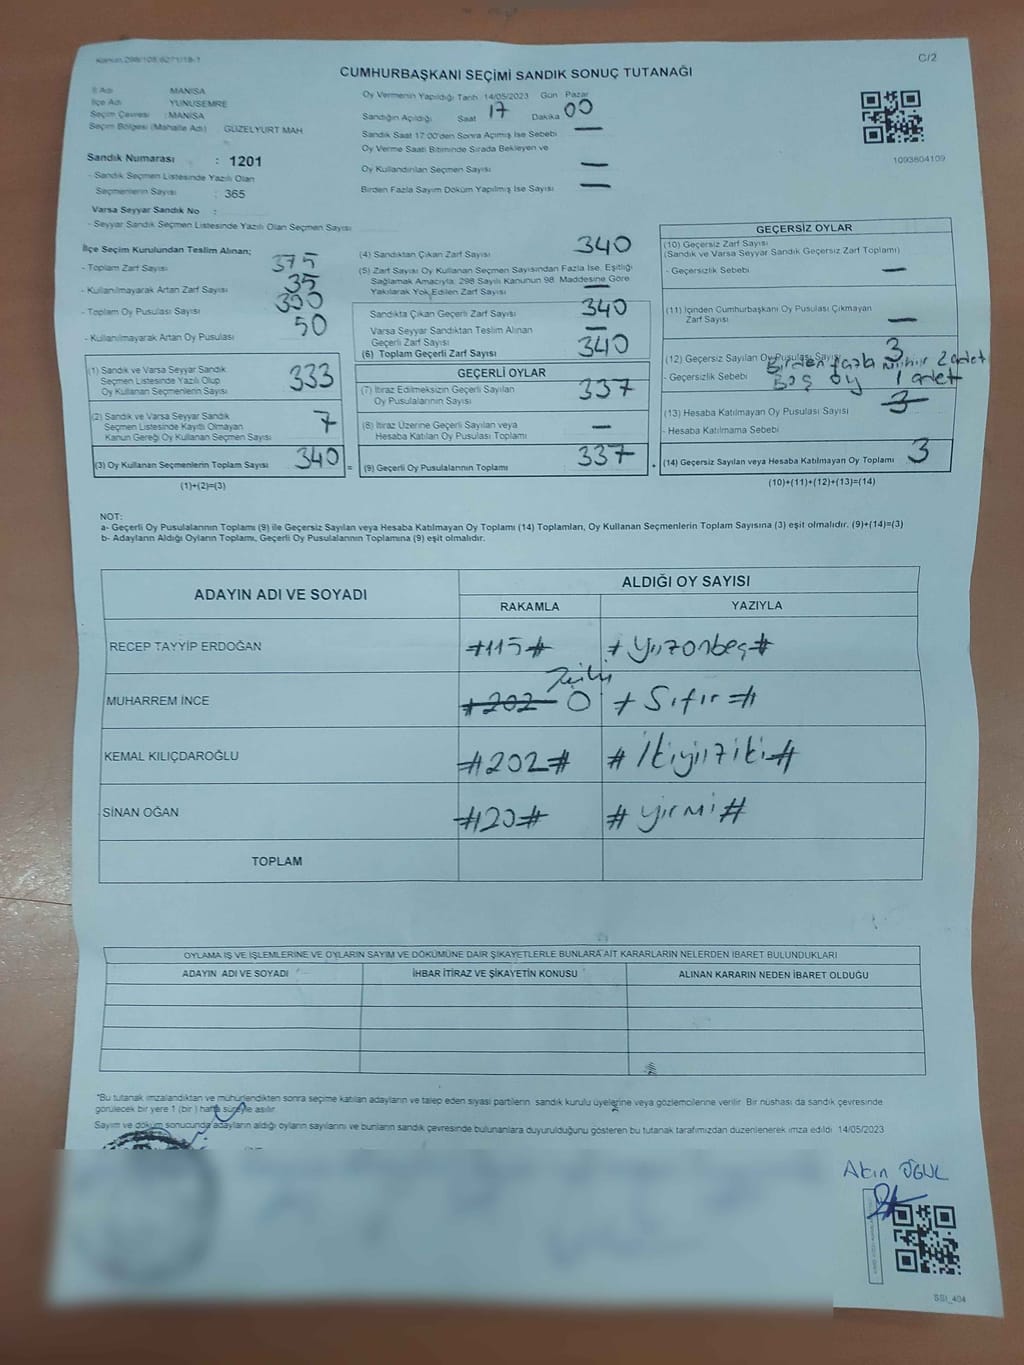 Kanun 298/105,6271/18-1
C/2
CUMHURBAŞKANI SEÇİMİ SANDIK SONUÇ TUTANAĞI
İl Adı MANİSA
İlçe Adı YUNUSEMRE
Seçim Çevresi : MANİSA
Seçim Bölgesi (Mahalle Adı) GÜZELYURT MAH
Sandık Numarası : 1201
- Sandık Seçmen Listesinde Yazılı Olan
Seçmenlerin Sayısı : 365
Varsa Seyyar Sandık No :
- Seyyar Sandık Seçmen Listesinde Yazılı Olan Seçmen Sayısı :
Oy Vermenin Yapıldığı Tarih 14/05/2023 Gün Pazar
Sandığın Açıldığı Saat 17 Dakika 00
Sandık Saat 17:00'den Sonra Açılmış İse Sebebi —
Oy Verme Saati Bitiminde Sırada Bekleyen ve
Oy Kullandırılan Seçmen Sayısı —
Birden Fazla Sayım Döküm Yapılmış İse Sayısı —
1093804109
İlçe Seçim Kurulundan Teslim Alınan;
- Toplam Zarf Sayısı 375
- Kullanılmayarak Artan Zarf Sayısı 35
- Toplam Oy Pusulası Sayısı
- Kullanılmayarak Artan Oy Pusulası 50
(1) Sandık ve Varsa Seyyar Sandık
Seçmen Listesinde Yazılı Olup
Oy Kullanan Seçmenlerin Sayısı 333
(2) Sandık ve Varsa Seyyar Sandık
Seçmen Listesinde Kayıtlı Olmayan
Kanun Gereği Oy Kullanan Seçmen Sayısı 7
(3) Oy Kullanan Seçmenlerin Toplam Sayısı 340 =
(1)+(2)=(3)
(4) Sandıktan Çıkan Zarf Sayısı 340
(5) Zarf Sayısı Oy Kullanan Seçmen Sayısından Fazla İse, Eşitliği
Sağlamak Amacıyla, 298 Sayılı Kanunun 98. Maddesine Göre
Yakılarak Yok Edilen Zarf Sayısı —
Sandıkta Çıkan Geçerli Zarf Sayısı 340
Varsa Seyyar Sandıktan Teslim Alınan
Geçerli Zarf Sayısı —
(6) Toplam Geçerli Zarf Sayısı 340
GEÇERLİ OYLAR
(7) İtiraz Edilmeksizin Geçerli Sayılan
Oy Pusulalarının Sayısı 337
(8) İtiraz Üzerine Geçerli Sayılan veya
Hesaba Katılan Oy Pusulası Toplamı —
(9) Geçerli Oy Pusulalarının Toplamı 337 +
GEÇERSİZ OYLAR
(10) Geçersiz Zarf Sayısı
(Sandık ve Varsa Seyyar Sandık Geçersiz Zarf Toplamı)
- Geçersizlik Sebebi —
(11) İçinden Cumhurbaşkanı Oy Pusulası Çıkmayan
Zarf Sayısı —
(12) Geçersiz Sayılan Oy Pusulası Sayısı 3
- Geçersizlik Sebebi Birden fazla mühür 2 adet
Boş oy 1 adet
(13) Hesaba Katılmayan Oy Pusulası Sayısı 3
- Hesaba Katılmama Sebebi
(14) Geçersiz Sayılan veya Hesaba Katılmayan Oy Toplamı 3
(10)+(11)+(12)+(13)=(14)
NOT:
a- Geçerli Oy Pusulalarının Toplamı (9) ile Geçersiz Sayılan veya Hesaba Katılmayan Oy Toplamı (14) Toplamları, Oy Kullanan Seçmenlerin Toplam Sayısına (3) eşit olmalıdır. (9)+(14)=(3)
b- Adayların Aldığı Oyların Toplamı, Geçerli Oy Pusulalarının Toplamına (9) eşit olmalıdır.
ADAYIN ADI VE SOYADI ALDIĞI OY SAYISI
RAKAMLA YAZIYLA
RECEP TAYYİP ERDOĞAN #115# # Yüzonbeş#
MUHARREM İNCE #202 0 # Sıfır #
KEMAL KILIÇDAROĞLU #202# # İkiyüziki#
SİNAN OĞAN #20# # yirmi #
TOPLAM
OYLAMA İŞ VE İŞLEMLERİNE VE OYLARIN SAYIM VE DÖKÜMÜNE DAİR ŞİKAYETLERLE BUNLARA AİT KARARLARIN NELERDEN İBARET BULUNDUKLARI
ADAYIN ADI VE SOYADI İHBAR İTİRAZ VE ŞİKAYETİN KONUSU ALINAN KARARIN NEDEN İBARET OLDUĞU
*Bu tutanak imzalandıktan ve mühürlendikten sonra seçime katılan adayların ve talep eden siyasi partilerin sandık kurulu üyelerine veya gözlemcilerine verilir. Bir nüshası da sandık çevresinde
görülecek bir yere 1 (bir) hafta süreyle asılır.
Sayım ve döküm sonucunda adayların aldığı oyların sayılarını ve bunların sandık çevresinde bulunanlara duyurulduğunu gösteren bu tutanak tarafımızdan düzenlenerek imza edildi 14/05/2023
Akın ÖGÜL
SSI_404